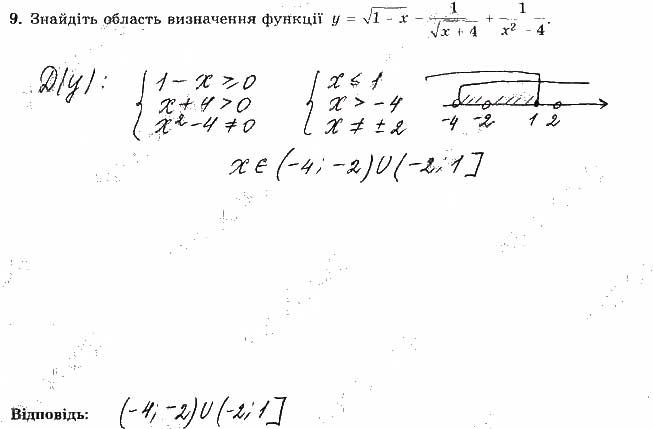 9. Знайдіть область визначення функції y = √(1 - x) - 1/√(x + 4) + 1/(x² - 4).
D(y): { 1 - x ≥ 0 { x ≤ 1
x + 4 > 0 x > -4
x² - 4 ≠ 0 x ≠ ± 2
-4 -2 1 2
x ∈ (-4; -2) ∪ (-2; 1]
Відповідь: (-4; -2) ∪ (-2; 1]